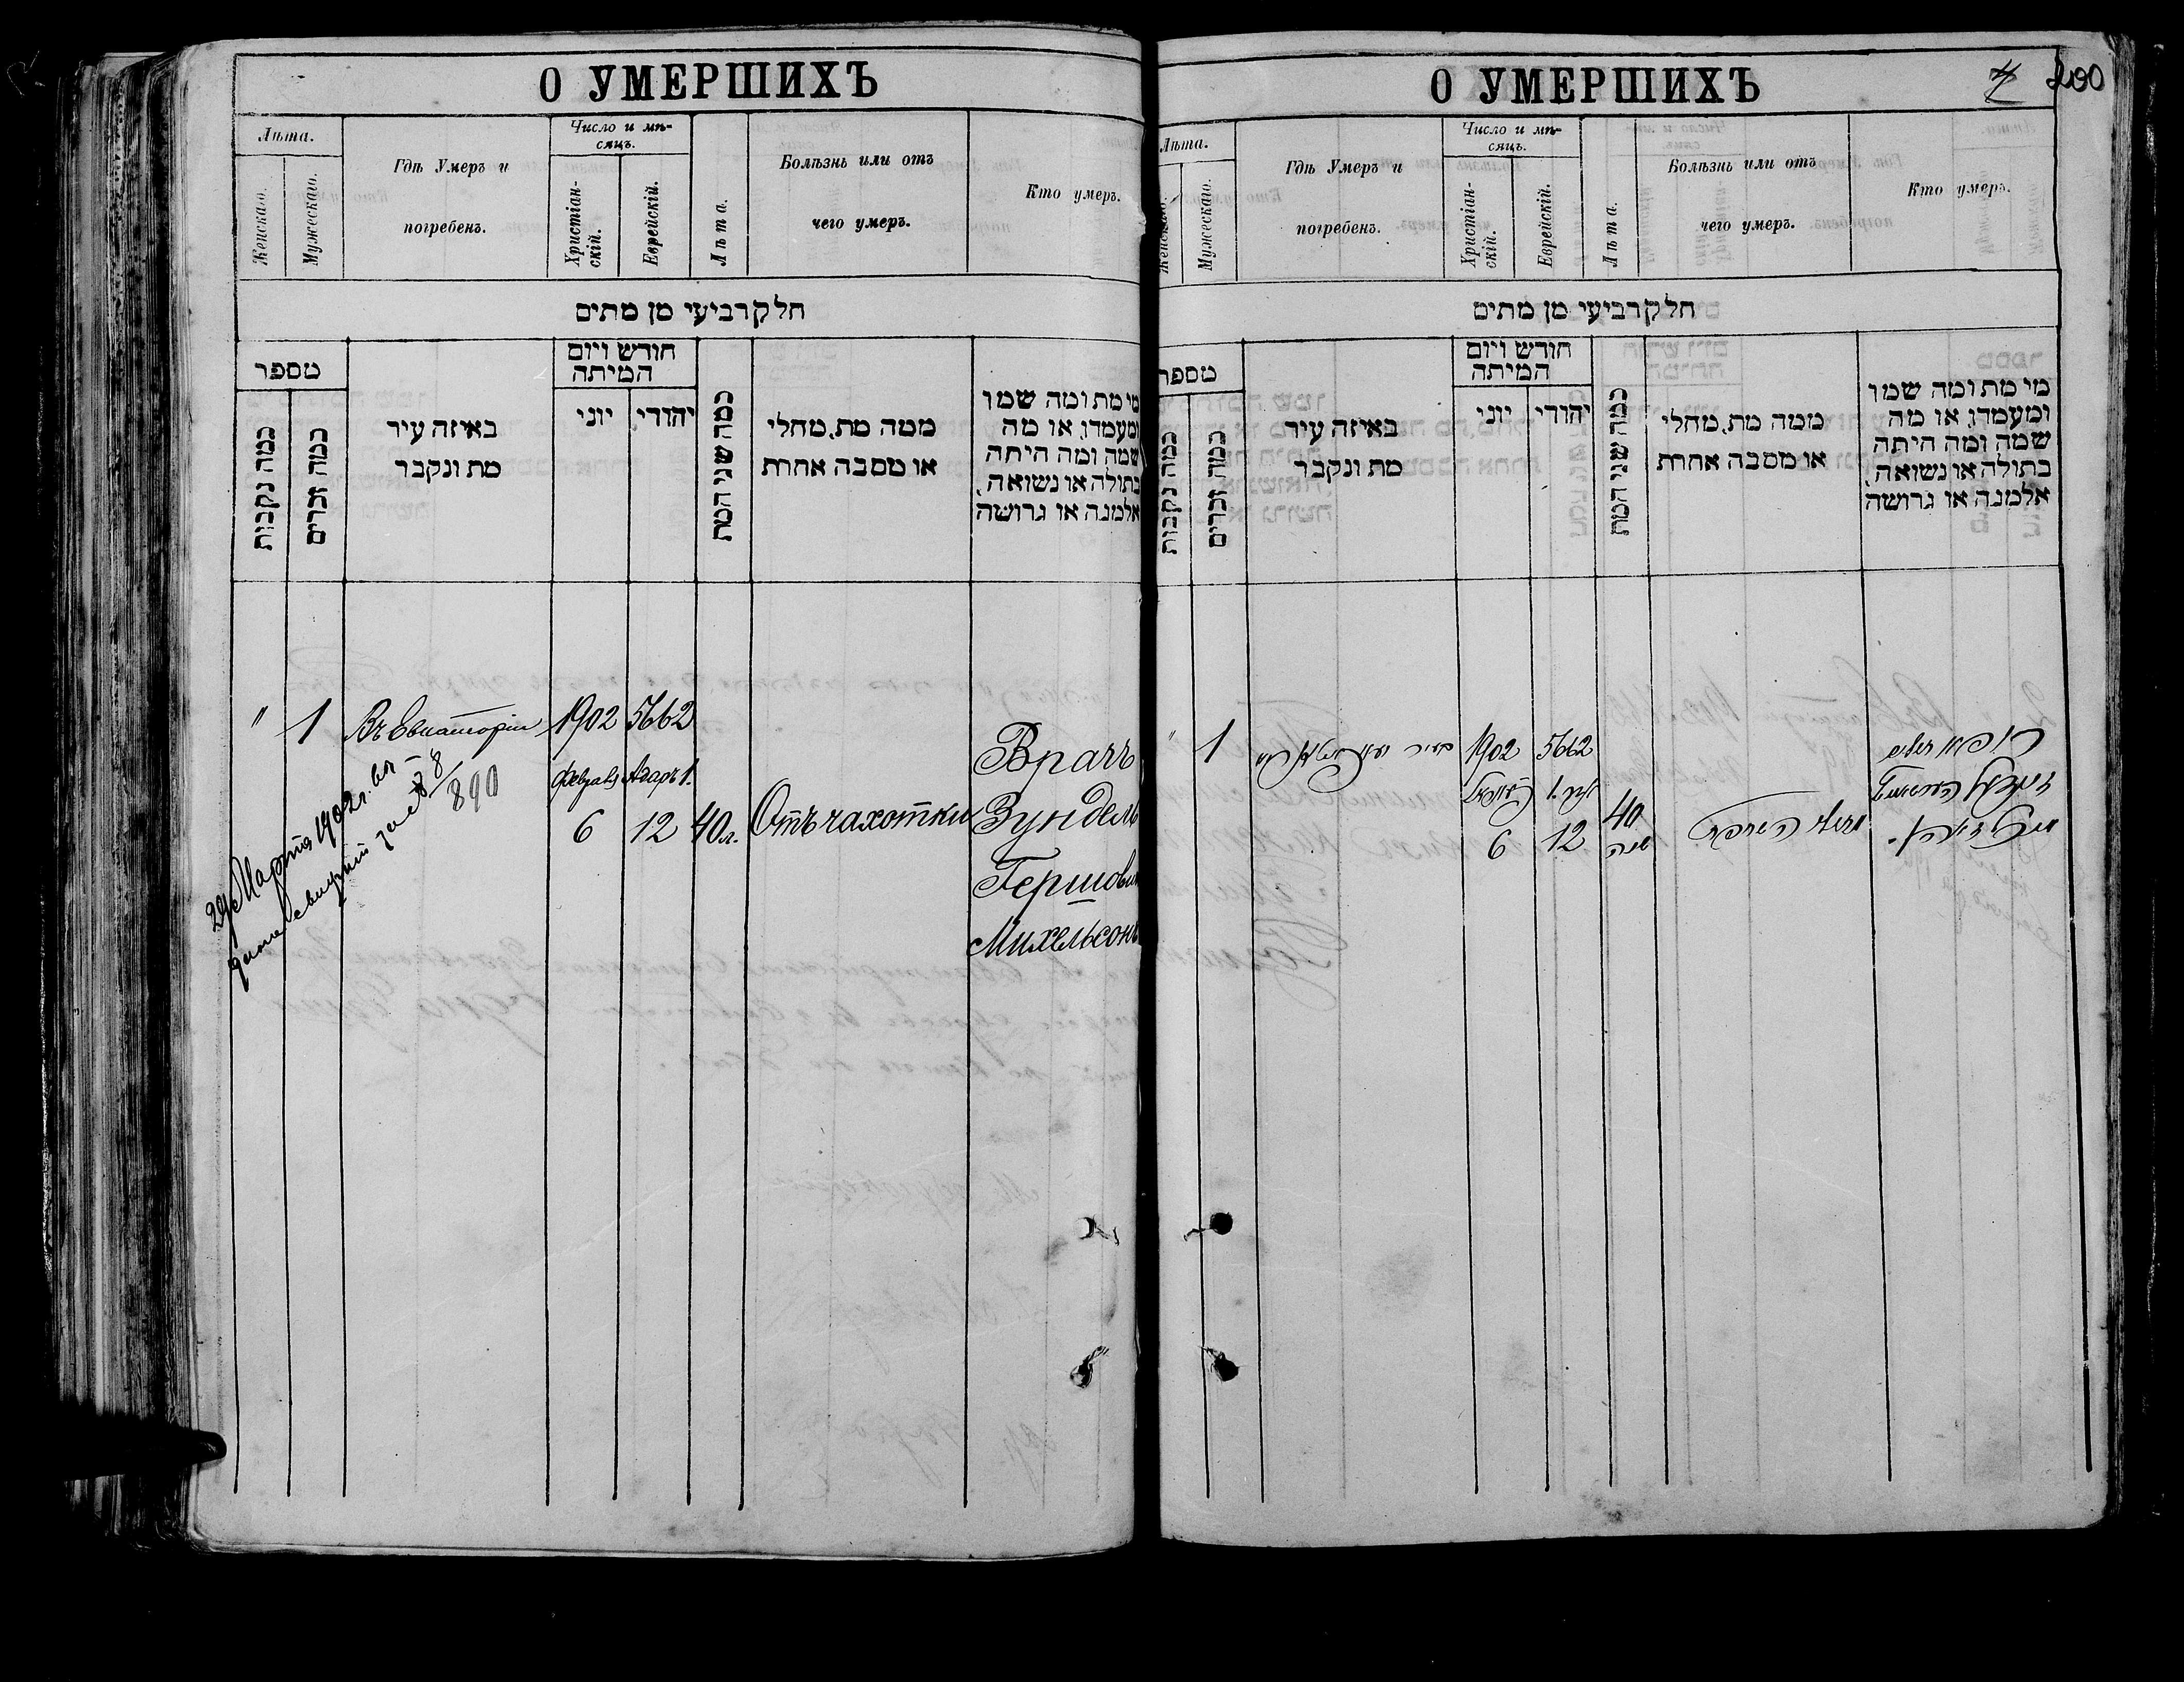 О УМЕРШИХЪ
Лѣта.
Женскаго.
Мужескаго.
Гдѣ Умеръ и
погребенъ.
Число и мѣ-
сяцъ.
Христіан-
скій.
Еврейскій.
Лѣта.
Болѣзнь или отъ
чего умеръ.
Кто умеръ.
חלק רביעי מן מתים
מספר
כמה נקבות
כמה זכרים
באיזה עיר
מת ונקבר
חודש ויום
המיתה
יוני
יהודי
כמה שני המת
ממה מת, מחלי
או מסבה אחרת
מי מת ומה שמו
ומעמדו, או מה
שמה ומה היתה
בתולה או נשואה,
אלמנה או גרושה
" 1 Въ Евпаторіи 1902 5662
Февраль Адаръ 1.
6 12 40 л. Отъ чахотки
Врачъ
Зундель
Гершовичъ
Михельсонъ
29 Марта 1902 г. въ
88/890
О УМЕРШИХЪ
4 200
Лѣта.
Женскаго.
Мужескаго.
Гдѣ Умеръ и
погребенъ.
Число и мѣ-
сяцъ.
Христіан-
скій.
Еврейскій.
Лѣта.
Болѣзнь или отъ
чего умеръ.
Кто умеръ.
חלק רביעי מן מתים
מספר
כמה נקבות
כמה זכרים
באיזה עיר
מת ונקבר
חודש ויום
המיתה
יוני
יהודי
כמה שני המת
ממה מת, מחלי
או מסבה אחרת
מי מת ומה שמו
ומעמדו, או מה
שמה ומה היתה
בתולה או נשואה,
אלמנה או גרושה
" 1 בעיר 1902 5662
אדר 1.
6 12
40
שנה